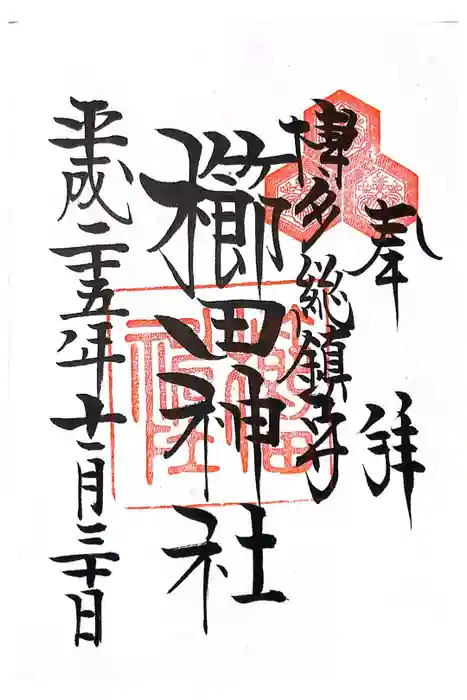 奉拝
博多総鎮守
櫛田神社
平成二十五年十一月三十日
櫛田神社